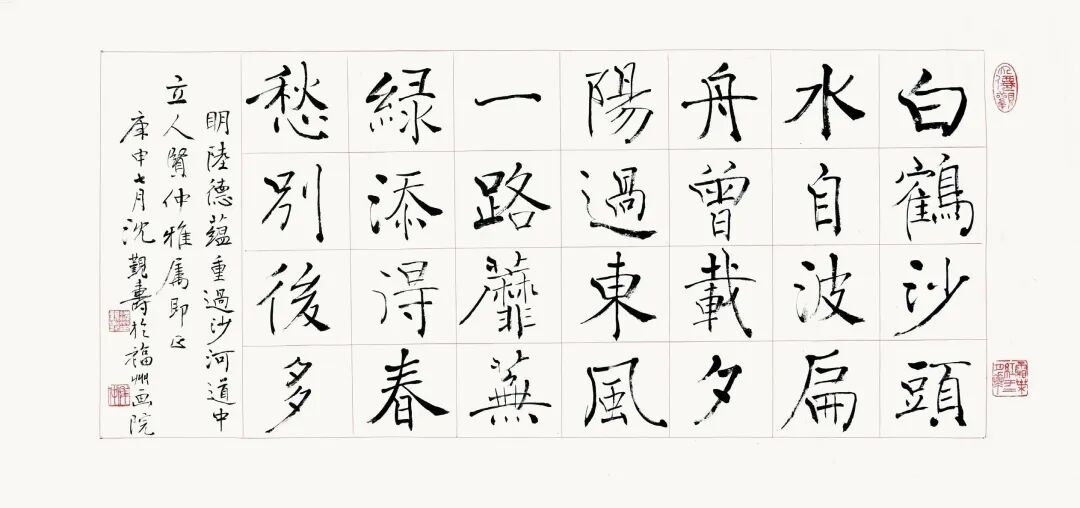 白鶴沙頭
水自波扁
舟曾載夕
陽過東風
一路蘼蕪
緑添得春
愁别後多
明陸德蘊重過沙河道中
立人賢仲雅属即正
庚申七月沈覲壽於福州画院